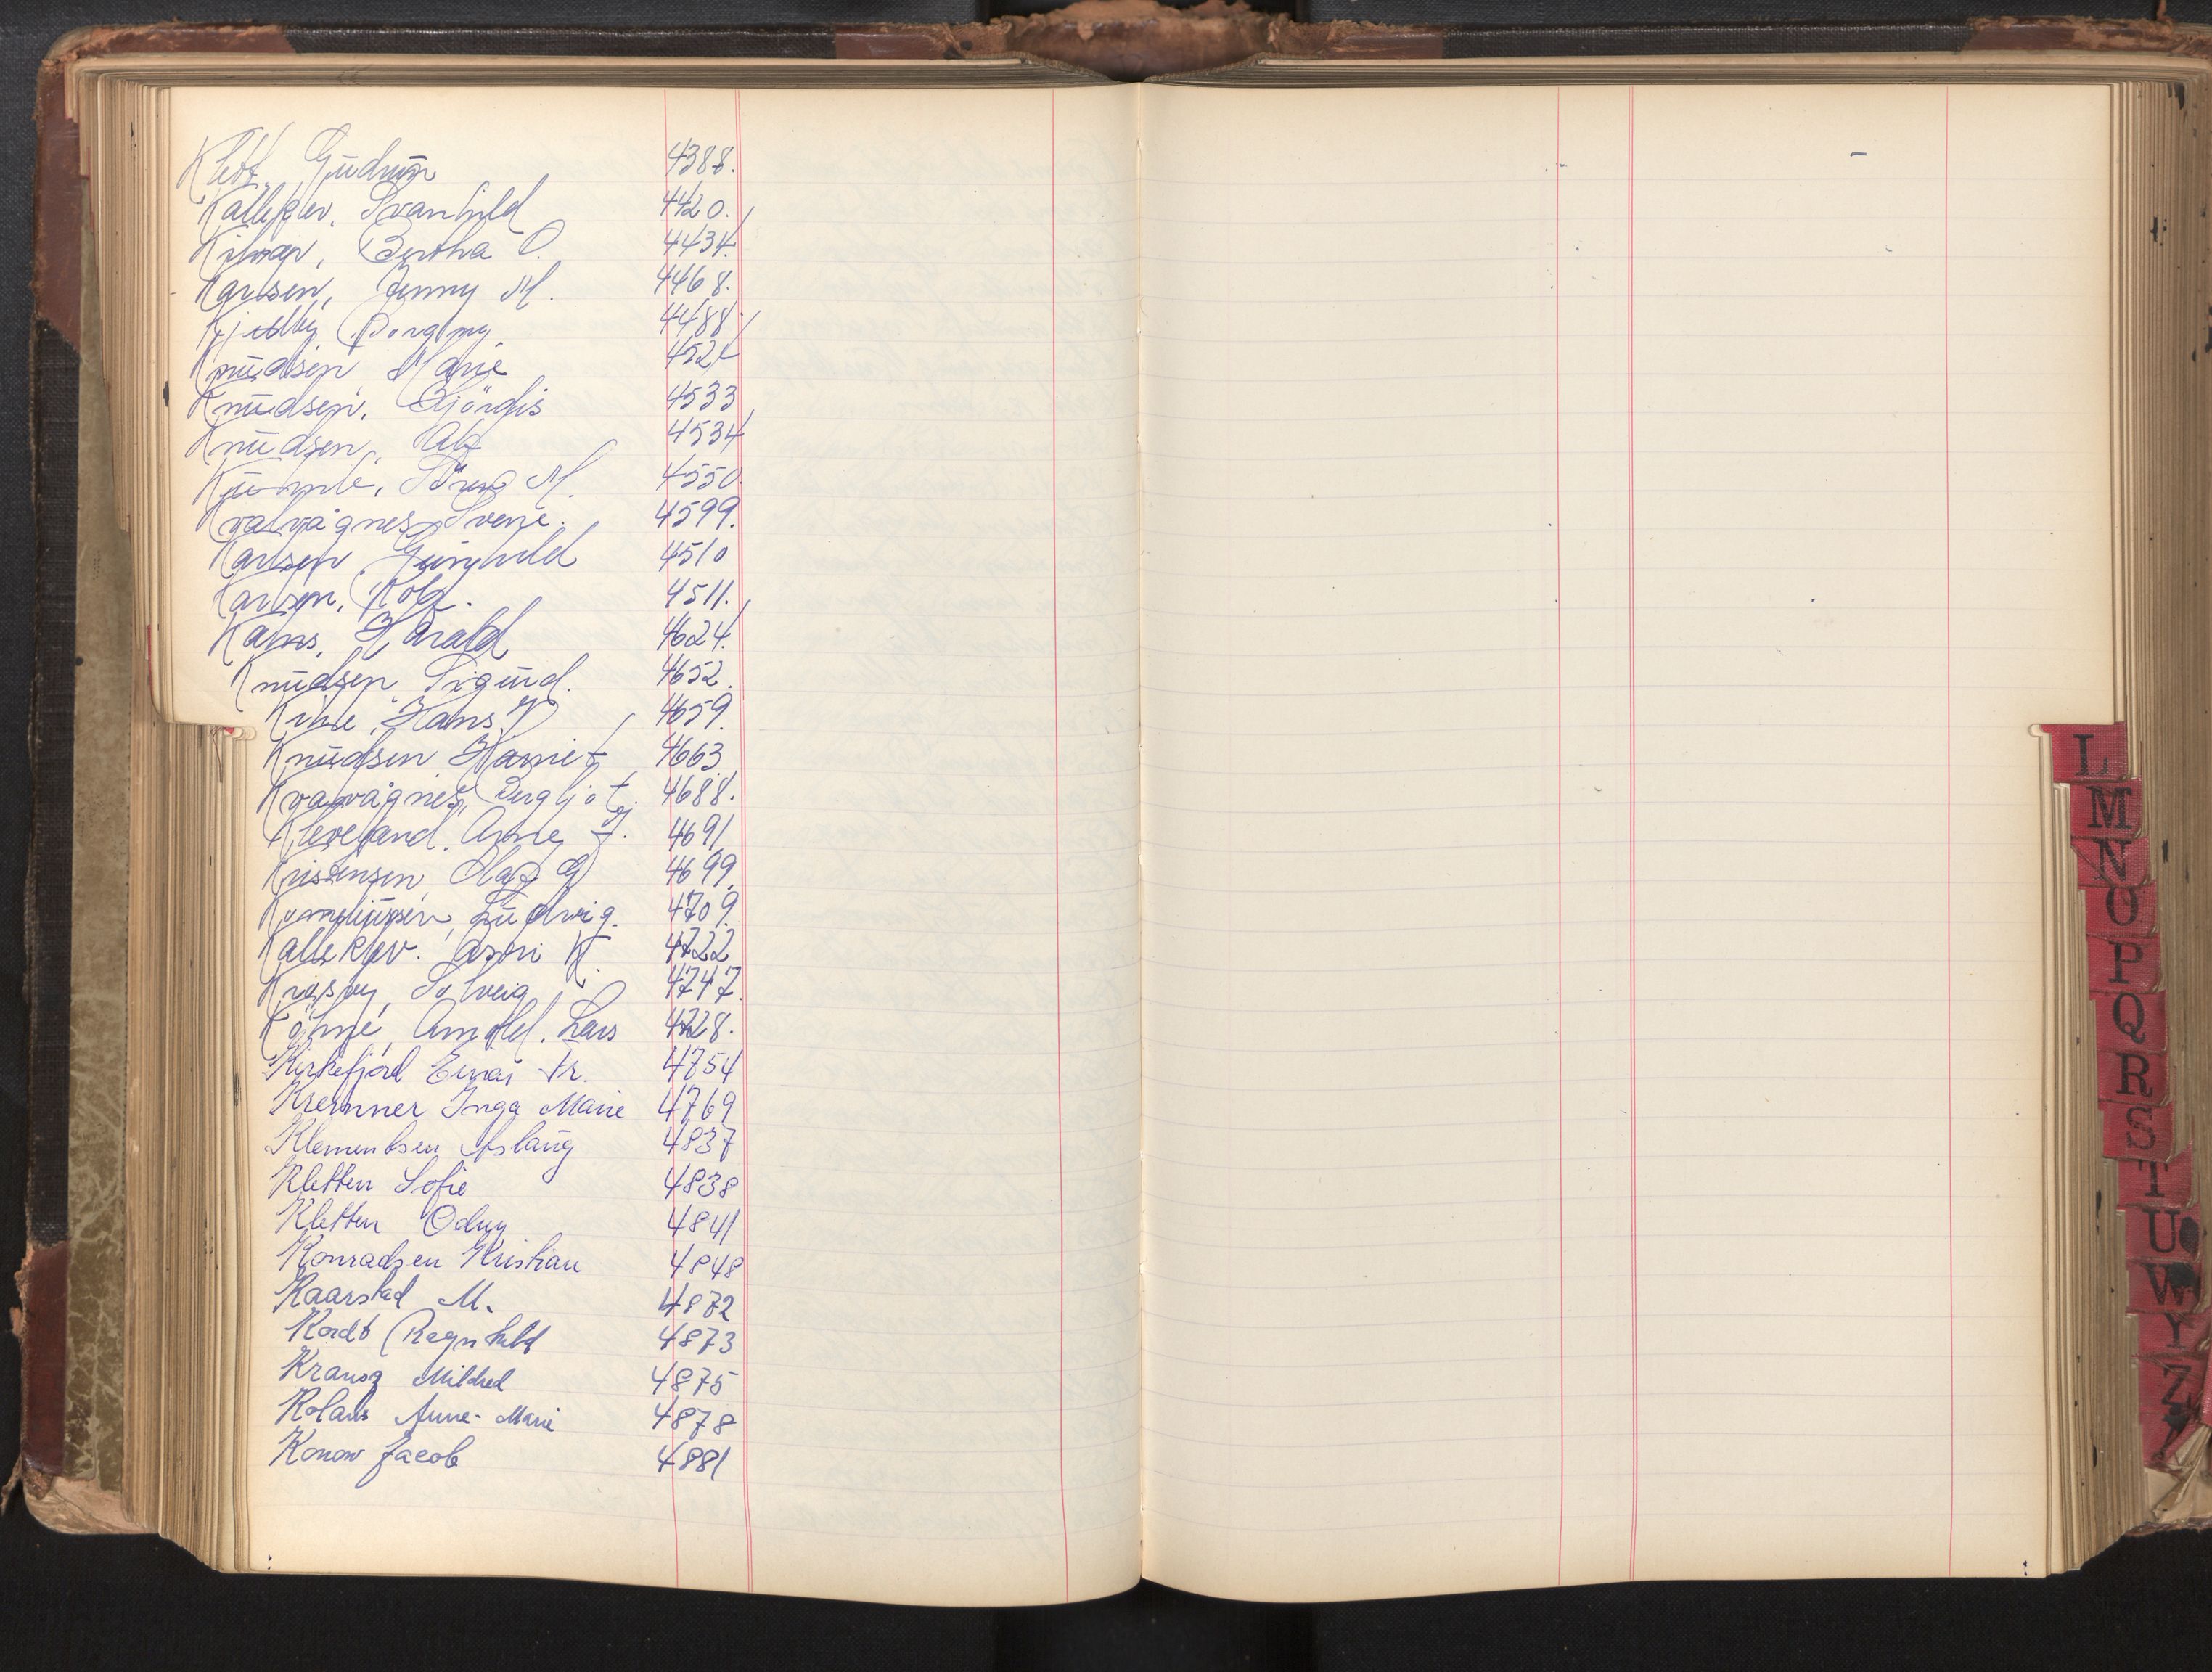 Klett, Gudrun 4388.
Kalleklev, Svanhild 4420.
Bertha O. 4434.
Karlsen, Jenny M. 4468.
Borgny 4488
Knudsen Marie
Knudsen, Hjördis 4533
Knudsen, Alf 4534
M. 4550.
Kvalvågnes, Sverre. 4599.
Karlsen, Gunhild 4510
Karlsen, Rolf. 4511.
Harald 4624.
Knudsen, Sigurd. 4652.
Hans 4659.
Knudsen Harriet 4663
Kvalvågnes, Bergljot. 4688.
Kleveland, Arne J. 4691
Kristensen, Olaf G 4699.
Ludvig. 4709.
Kalleklev. K. 4722
Solveig 4747.
Arnold. Lars 4728.
Kirkefjord Einar Fr. 4754
Kremner Inga Marie 4769
Klementsen Aslaug 4837
Kletten Sofie 4838
Kletten Odny 4841
Konradsen Kristian 4848
Kaarstad M. 4872
Kordt Ragnhild 4873
Mildred 4875
Anne-Marie 4878
Konow Jacob 4881
L
M
N
O
P
Q
R
S
T
U
W
Y
Z